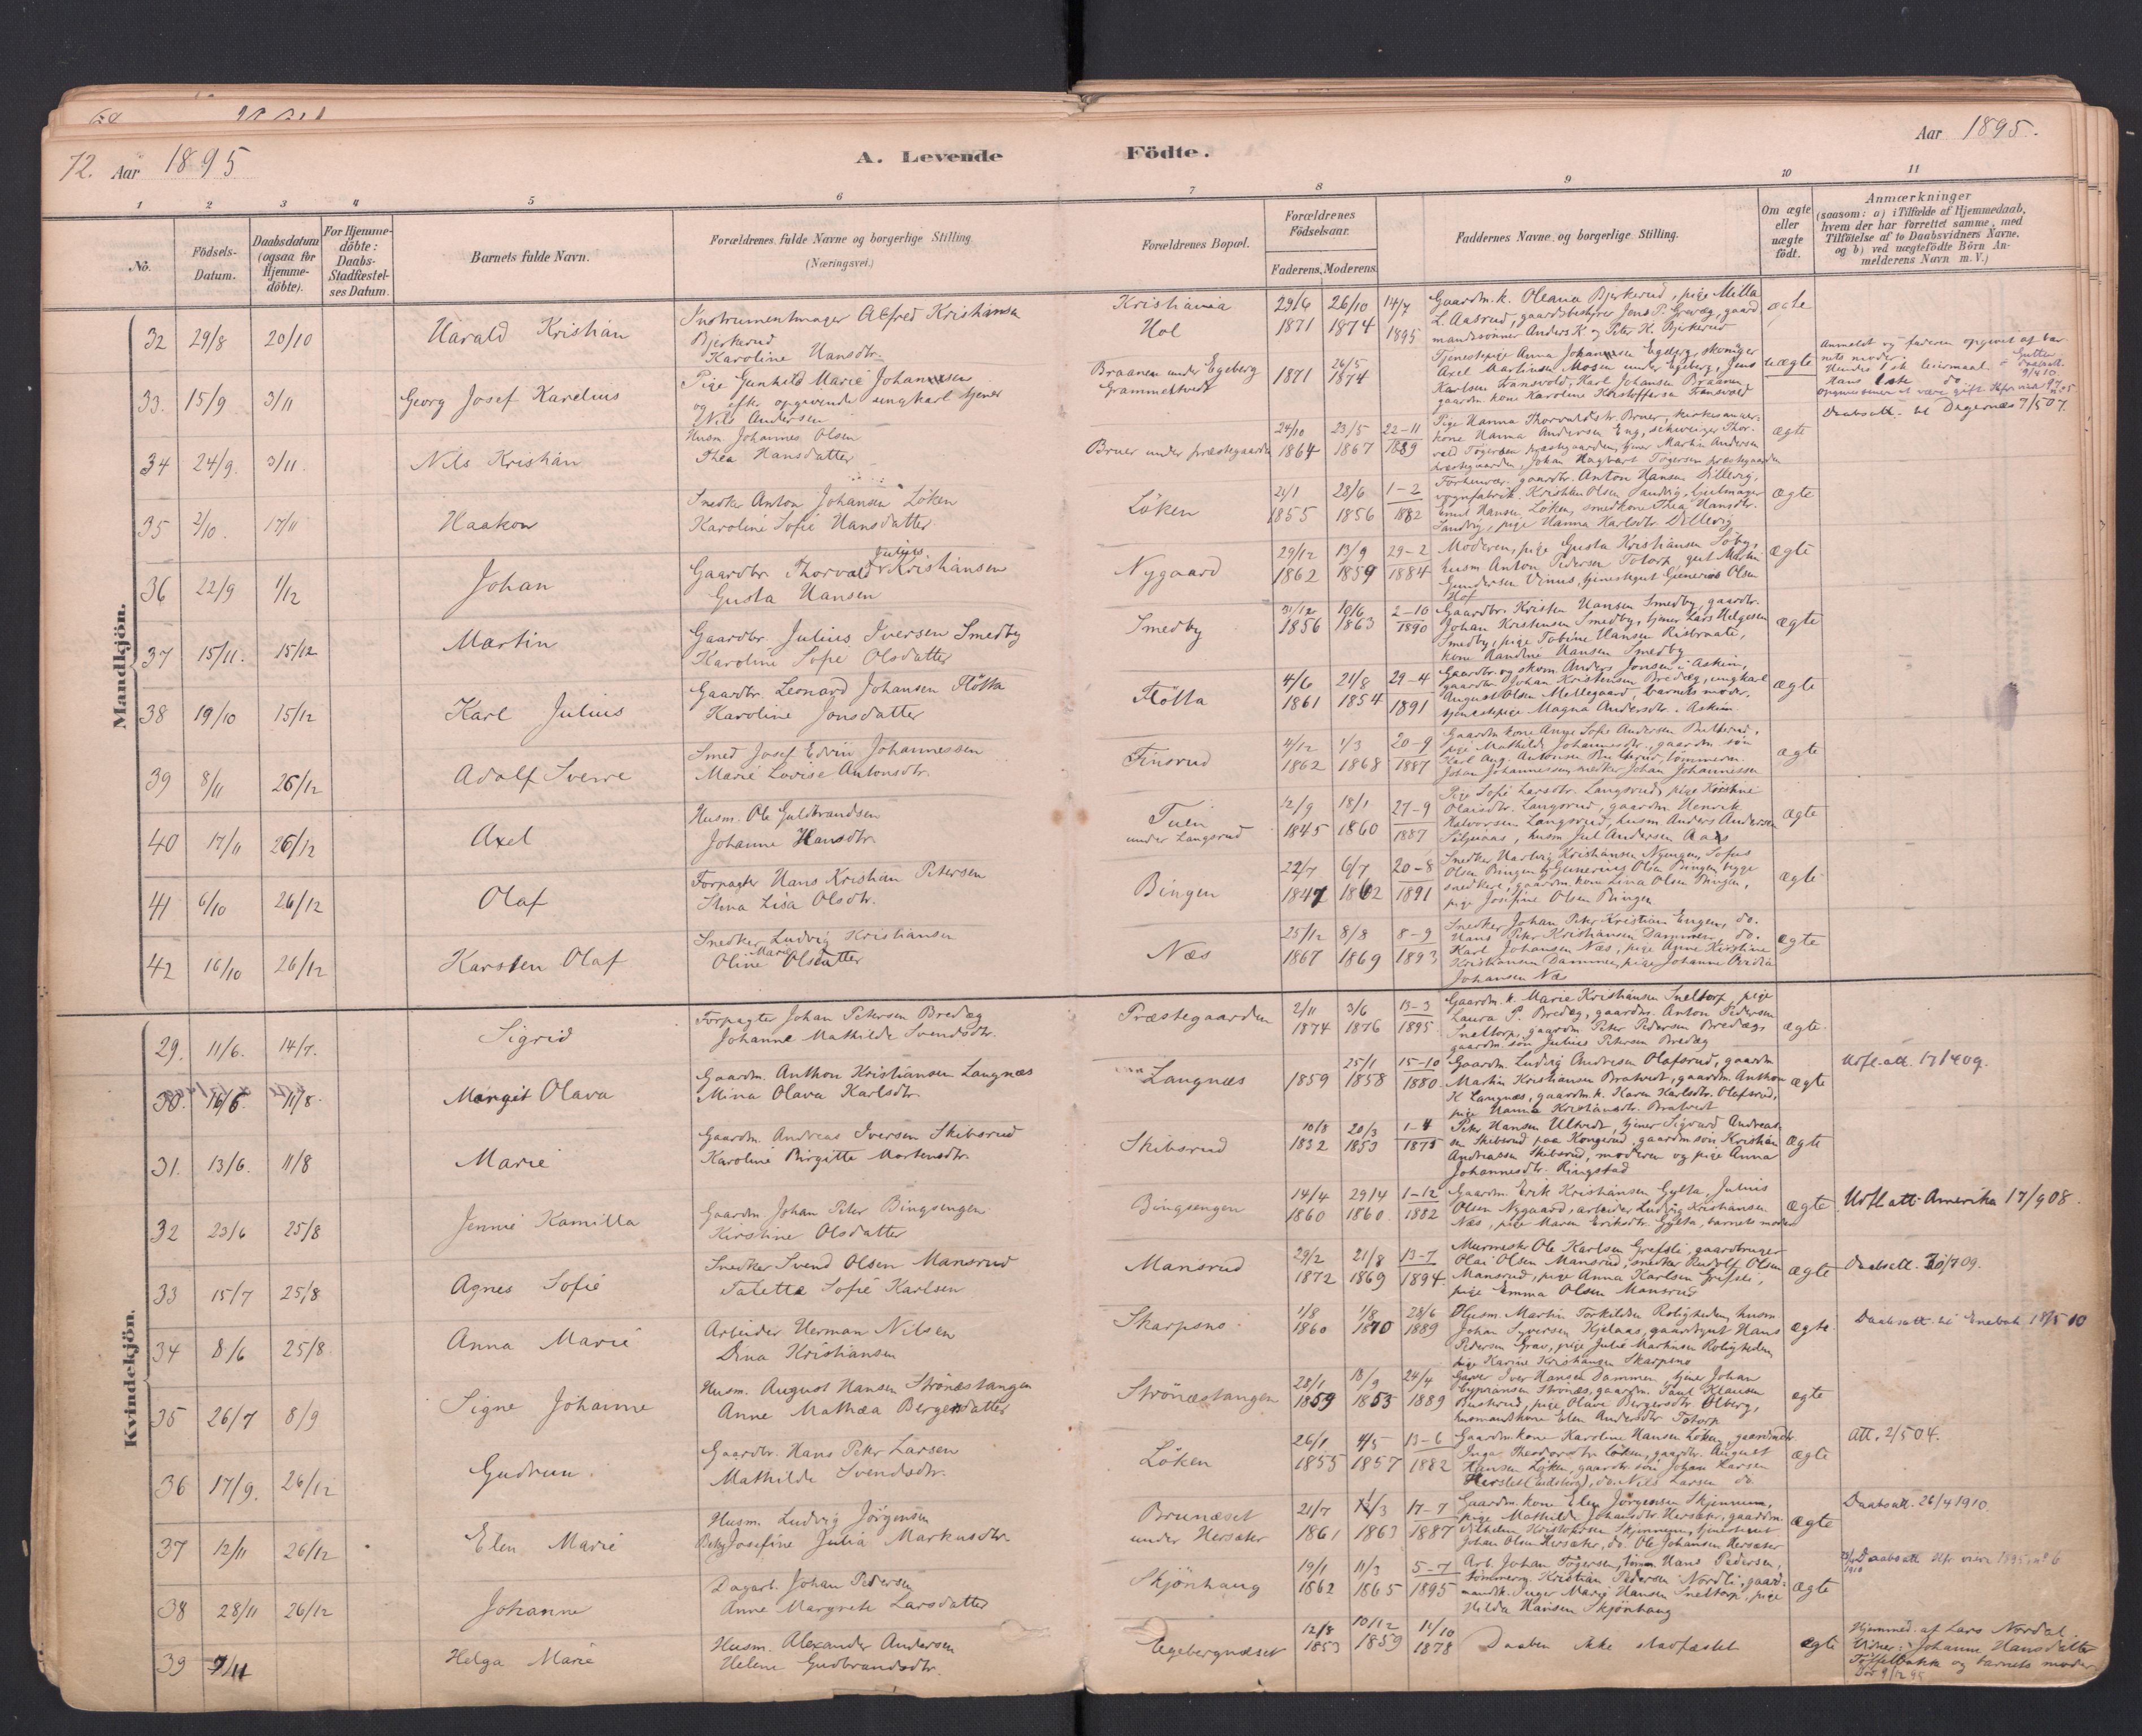 72. Aar 1895
A. Levende Födte.
Aar 1895.
1 2 3 4 5 6 7 8 9 10 11
No.
Födsels-Datum.
Daabsdatum (ogsaa for Hjemme-döbte).
For Hjemme-döbte: Daabs-Stadfæstel-ses Datum.
Barnets fulde Navn.
Forældrenes fulde Navne og borgerlige Stilling
(Næringsvei.)
Forældrenes Bopæl.
Forældrenes Födselsaar.
Faderens. Moderens.
Faddernes Navne og borgerlige Stilling.
Om ægte eller uægte födt.
Anmærkninger
(saasom: a) i Tilfælde af Hjemmedaab,
hvem der har forrettet samme, med
Tilföielse af to Daabsvidners Navne.
og b) ved uægtefödte Börn An-
melderens Navn m. V.)
Mandkjön.
32 29/8 20/10 Harald Kristian
Instrumentmager Alfred Kristiansen
Bjerkerud
Karoline Hansdtr.
Kristiania
Hol
29/6 1871 26/10 1874 14/7 1895
Gaardm. k. Oleana Bjerkerud, pige Milla
L. Aasrud, gaardsbestyrer Jens P. Grevæg, gaard
mandssönner Anders K. og Peter K. Bjerkerud
ægte
33. 15/9 3/11 Georg Josef Karelius
Pige Gunhild Marie Johannesen
og efter opgivende ungkarl tjener
Nils Andersen
Braanen under Egeberg
Grammeltvedt
1871 26/5 1874
Tjenestepige Anna Johannesen Egeberg, skomager
Axel Martinsen Mosen under Egeberg, Jens
Karlsen Transvold, Karl Johansen Braanen,
gaardm. kone Karoline Kristoffersen Transvold
uægte
Anmeldt og faderen opgivet af bar
nets moder.
Hendes 1ste leiermaal
Hans 1ste do
Daabsatt. til Degernæs 7/5 07.
34 24/9. 3/11. Nils Kristian
Husm. Johannes Olsen
Thea Hansdatter
Bruer under præstegaarden
24/10 1864 23/5 1867 22-11 1889
Pige Hanna Thorvaldsdtr. Bruer,
kone Hanna Andersen Eng, schweizer Thor-
vald Tögersen præstegaarden, tjener Martin Andersen
præstegaarden, Johan Hagbart Tögersen præstegaarden
ægte
35 2/10. 17/11 Haakon
Snedker Anton Johansen Löken
Karoline Sofie Hansdatter
Löken
21/1 1855 28/6 1856 1-2 1882
gaardbr. Anton Hansen Dillevig,
vognfabrik. Kristian Olsen Sandvig, hjulmager
Emil Hansen Löken, smedkone Thea Hansdtr.
Sandvig, pige Hanna Karlsdtr. Dillevig
ægte
36 22/9 1/12 Johan
Gaardbr. Thorvald Julius Kristiansen
Gusta Hansen
Nygaard
29/12 1862 13/9 1859 29-2 1884
Moderen, pige Gusta Kristiansen Soby,
husm. Anton Pedersen Totorp, gut Martin
Gundersen Vinus, tjenestegut Generius Olsen
Hof
ægte
37 15/11. 15/12 Martin
Gaardbr. Julius Iversen Smedby
Karoline Sofie Olsdatter
Smedby
31/12 1856 10/6 1863 2-16 1890
Gaardbr. Kristen Hansen Smedby, gaardbr.
Johan Kristensen Smedby, tjener Lars Helgesen
Smedby, pige Tobine Hansen Risbraate,
kone Randine Hansen Smedby
ægte
38 19/10 15/12 Karl Julius
Gaardbr. Leonard Johansen Flötta
Karoline Jonsdatter
Flötta
4/6 1861 21/8 1854 29-4 1891
Gaardbr. og skom. Anders Jonsen i Askim,
gaardbr. Johan Kristensen Bredæg, ungkarl
August Olsen Mellegaard, barnets moder,
tjenestepige Magna Andersdtr. i Askim
ægte
39 8/11 26/12 Adolf Sverre
Smed Josef Edvin Johannessen
Marie Lovise Antonsdtr.
Finsrud
4/12 1862 1/3 1868 20-9 1887
Gaardm. kone Ange Sofie Andersen Butterud,
pige Mathilde Johannesdtr., gaardm. sön
Karl Aug. Antonsen Butterud, tömmerm.
Johan Johannessen, snedker Johan Johannessen
ægte
40 17/11 26/12 Axel
Husm. Ole Guldbrandsen
Johanne Hansdtr.
Tuen
under Langsrud
12/9 1845 18/1 1860 27-9 1887
Pige Sofie Larsdtr. Langsrud, pige Kristine
Olausdtr. Langsrud, gaardm. Henrik
Halvorsen Langsrud, husm. Anders Andersen
Siljuaas, husm. Jul Andersen Aaas
ægte
41 6/10 26/12 Olaf
Forpagter Hans Kristian Petersen
Stina Lisa Olsdtr.
Bingen
22/7 1847 6/7 1862 20-8 1891
Snedker Hartvig Kristiansen Nyengen, Sofus
Olsen Bingen & Gunerius Olsen Bingen, begge
snedkere, gaardm. kone Lina Olsen Bingen,
pige Josefine Olsen Bingen
ægte
42 16/10 26/12 Karsten Olaf
Snedker Ludvig Kristiansen
Oline Marie Olsdatter
Næs
25/12 1867 8/8 1869 8-9 1893
Snedker Johan Peter Kristian Engen, do.
Hans Peter Kristiansen Dammen, do.
Karl Johansen Næs, pige Anne Kirstine
Kristiansen Dammen, pige Johanne Ovidia
Johansen Næs
ægte
Kvindekjön.
29. 11/6. 14/7. Sigrid
Forpagter Johan Petersen Bredæg
Johanne Mathilde Svendsdtr.
Præstegaarden
2/11 1874 3/6 1876 13-3 1895.
Gaardm. k. Marie Kristiansen Sneltorp, pige
Laura P. Bredæg, gaardm. Anton Pedersen
Sneltorp, gaardm. Peter Pedersen Bredæg,
gaardm. sön Julius Petersen Bredæg
ægte.
30. 16/6 11/8. Margit Olava
Gaardm. Anthon Kristiansen Langnæs
Mina Olava Karlsdtr.
Langnæs
1859 25/1 1858 15-10 1880
Gaardm. Ludvig Andresen Olafsrud, gaardm
Martin Kristiansen Bratvedt, gaardm. Anthon
K Langnæs, gaardm. k. Karen Karlsdtr. Olafsrud,
pige Hanna Kristiansdtr. Bratvedt
ægte
Utfl. att. 17/4 09.
31. 13/6. 11/8 Marie
Gaardm. Andreas Iversen Skibsrud
Karoline Birgitte Mortensdtr.
Skibsrud
10/8 1832 20/3 1853 1-4 1875
Peter Hansen Ultvedt, tjener Sigvard Andreas-
sen Skibsrud paa Kongerud, gaardm. sön Kristian
Andreassen Skibsrud, moderen og pige Anna
Johannesdtr. Ringstad
ægte
32 23/6 25/8 Jennie Kamilla
Gaardm. Johan Peter Bingsengen
Kirstine Olsdatter
Bingsengen
14/4 1860 29/4 1860. 1-12 1882
Gaardm. Erik Kristiansen Gylta, Julius
Olsen Nygaard, arbeider Ludvig Kristiansen
Næs, pige Maren Eriksdtr. Gylta, barnets moder
ægte
Utfl. att. Amerika 17/9 08.
33 15/7 25/8 Agnes Sofie
Snedker Svend Olsen Mansrud
Taletta Sofie Karlsen
Mansrud
29/2 1872 21/8 1869 13-7 1894.
Murmester Ole Karlsen Grefsli, gaardbruger
Olai Olsen Mansrud, snedker Rudolf Olsen
Mansrud, pige Anna Karlsen Grefsli,
pige Emma Olsen Mansrud
ægte
Daabsatt. 30/7 09.
34 8/6 25/8 Anna Marie
Arbeider Herman Nilsen
Dina Kristiansen
Skarpsno
1/8 1860 1/8 1870 28/6 1889
Husm. Martin Torkildsen Roligheden, husm
Johan Syversen Kjelaas, gaardsgut Hans
Pedersen Grav, pige Julie Martinsen Roligheden,
pige Karine Kristiansen Skarpsno
ægte.
Daabsatt. til Enebak 18/5 10
35 26/7 8/9 Signe Johanne
Husm. August Hansen Strönæstangen
Anne Mathea Bergersdatter
Strönæstangen
28/1 1859 18/9 1853 24/4 1889
Garver Iver Hansen Dammen, tjener Johan
Cypriansen Strönæs, gaardm. Paul Klausen
Buskrud, pige Olave Bergersdtr. Olberg,
husmandskone Elen Andersdtr Totorp
ægte
36 17/9. 26/12 Gudrun.
Gaardbr. Hans Peter Larsen
Mathilde Svendsdtr.
Löken
26/1 1855 4/5 1857 13-6 1882
Gaardm. kone Karoline Hansen Löken, gaardmdtr.
Inga Theodorsdtr Löken, gaardbr. August
Hansen Löken, gaardbr. sön Johan Larsen
Herslet (Eidsberg), do Nils Larsen do.
ægte
Att. 2/5 04.
37 12/11 26/12 Elen Marie
Husm. Ludvig Jörgensen
Josefine Julia Markusdtr.
Brunæset
under Hersæter
21/7 1861 1863 17-7 1887
Gaardm. kone Elen Jörgensen Skjennum,
pige Mathilde Johansdtr Hersæter, gaardm.
Vilhelm Kristoffersen Skjennum, tjenestegut
Johan Olsen Hersæter, do. Ole Johansen Hersæter
ægte
Daabsatt. 26/4 1910.
38 28/11 26/12 Johanne
Dagarb. Johan Pedersen
Anne Margrete Larsdatter
Skjönhaug
19/1 1862 11/3 1865 5-7 1895
Arb. Johan Tögersen, tömm. Hans Pedersen,
tömmerm. Kristian Pedersen Nordli, gaard-
mandsk. Inger Marie Hansen Sneltorp, pige
Hilda Hansen Skjönhaug
ægte
Daabsatt.
39 7/11 Helga Marie
Husm. Alexander Andersen
Helene Gudbrandsdtr.
Egebergnæset
12/8 1853 10/12 1859 11/10 1878
Daaben ikke stadfæstet
ægte
Hjemmed. af Lars Nordal.
Vidner: Johanne Hansdatter
og barnets moder
Död 9/12 95